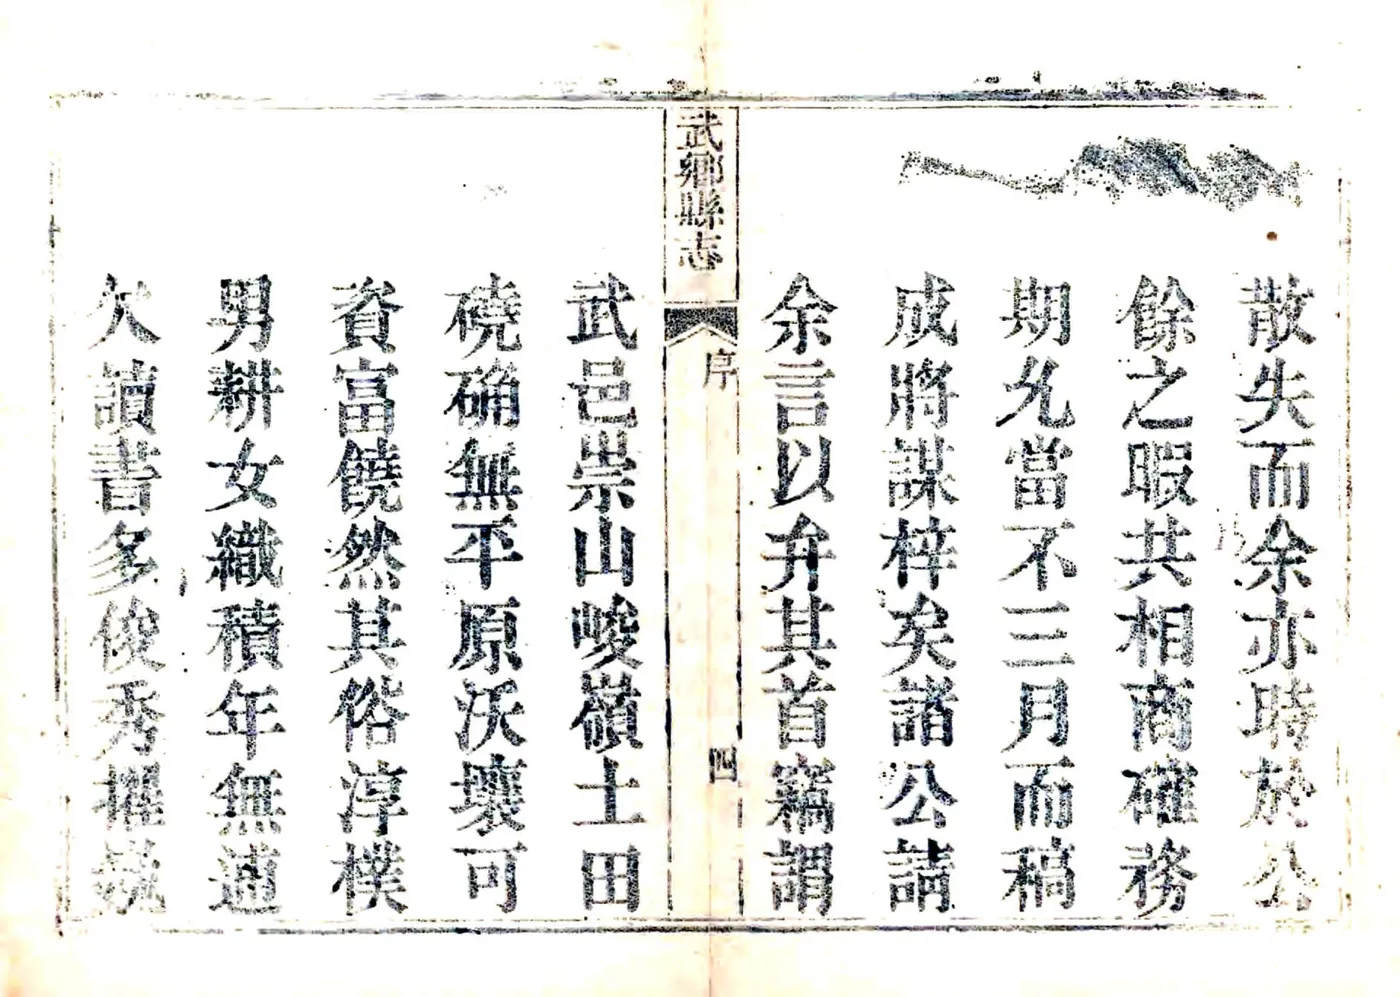 散失而余亦時於公
餘之暇共相商確務
期允當不三月而稿
成將謀梓矣諸公請
余言以弁其首竊謂
武鄉縣志
序
四
武邑崇山峻嶺土田
磽确無平原沃壤可
資富饒然其俗淳樸
男耕女織積年無逋
欠讀書多俊秀擢巍